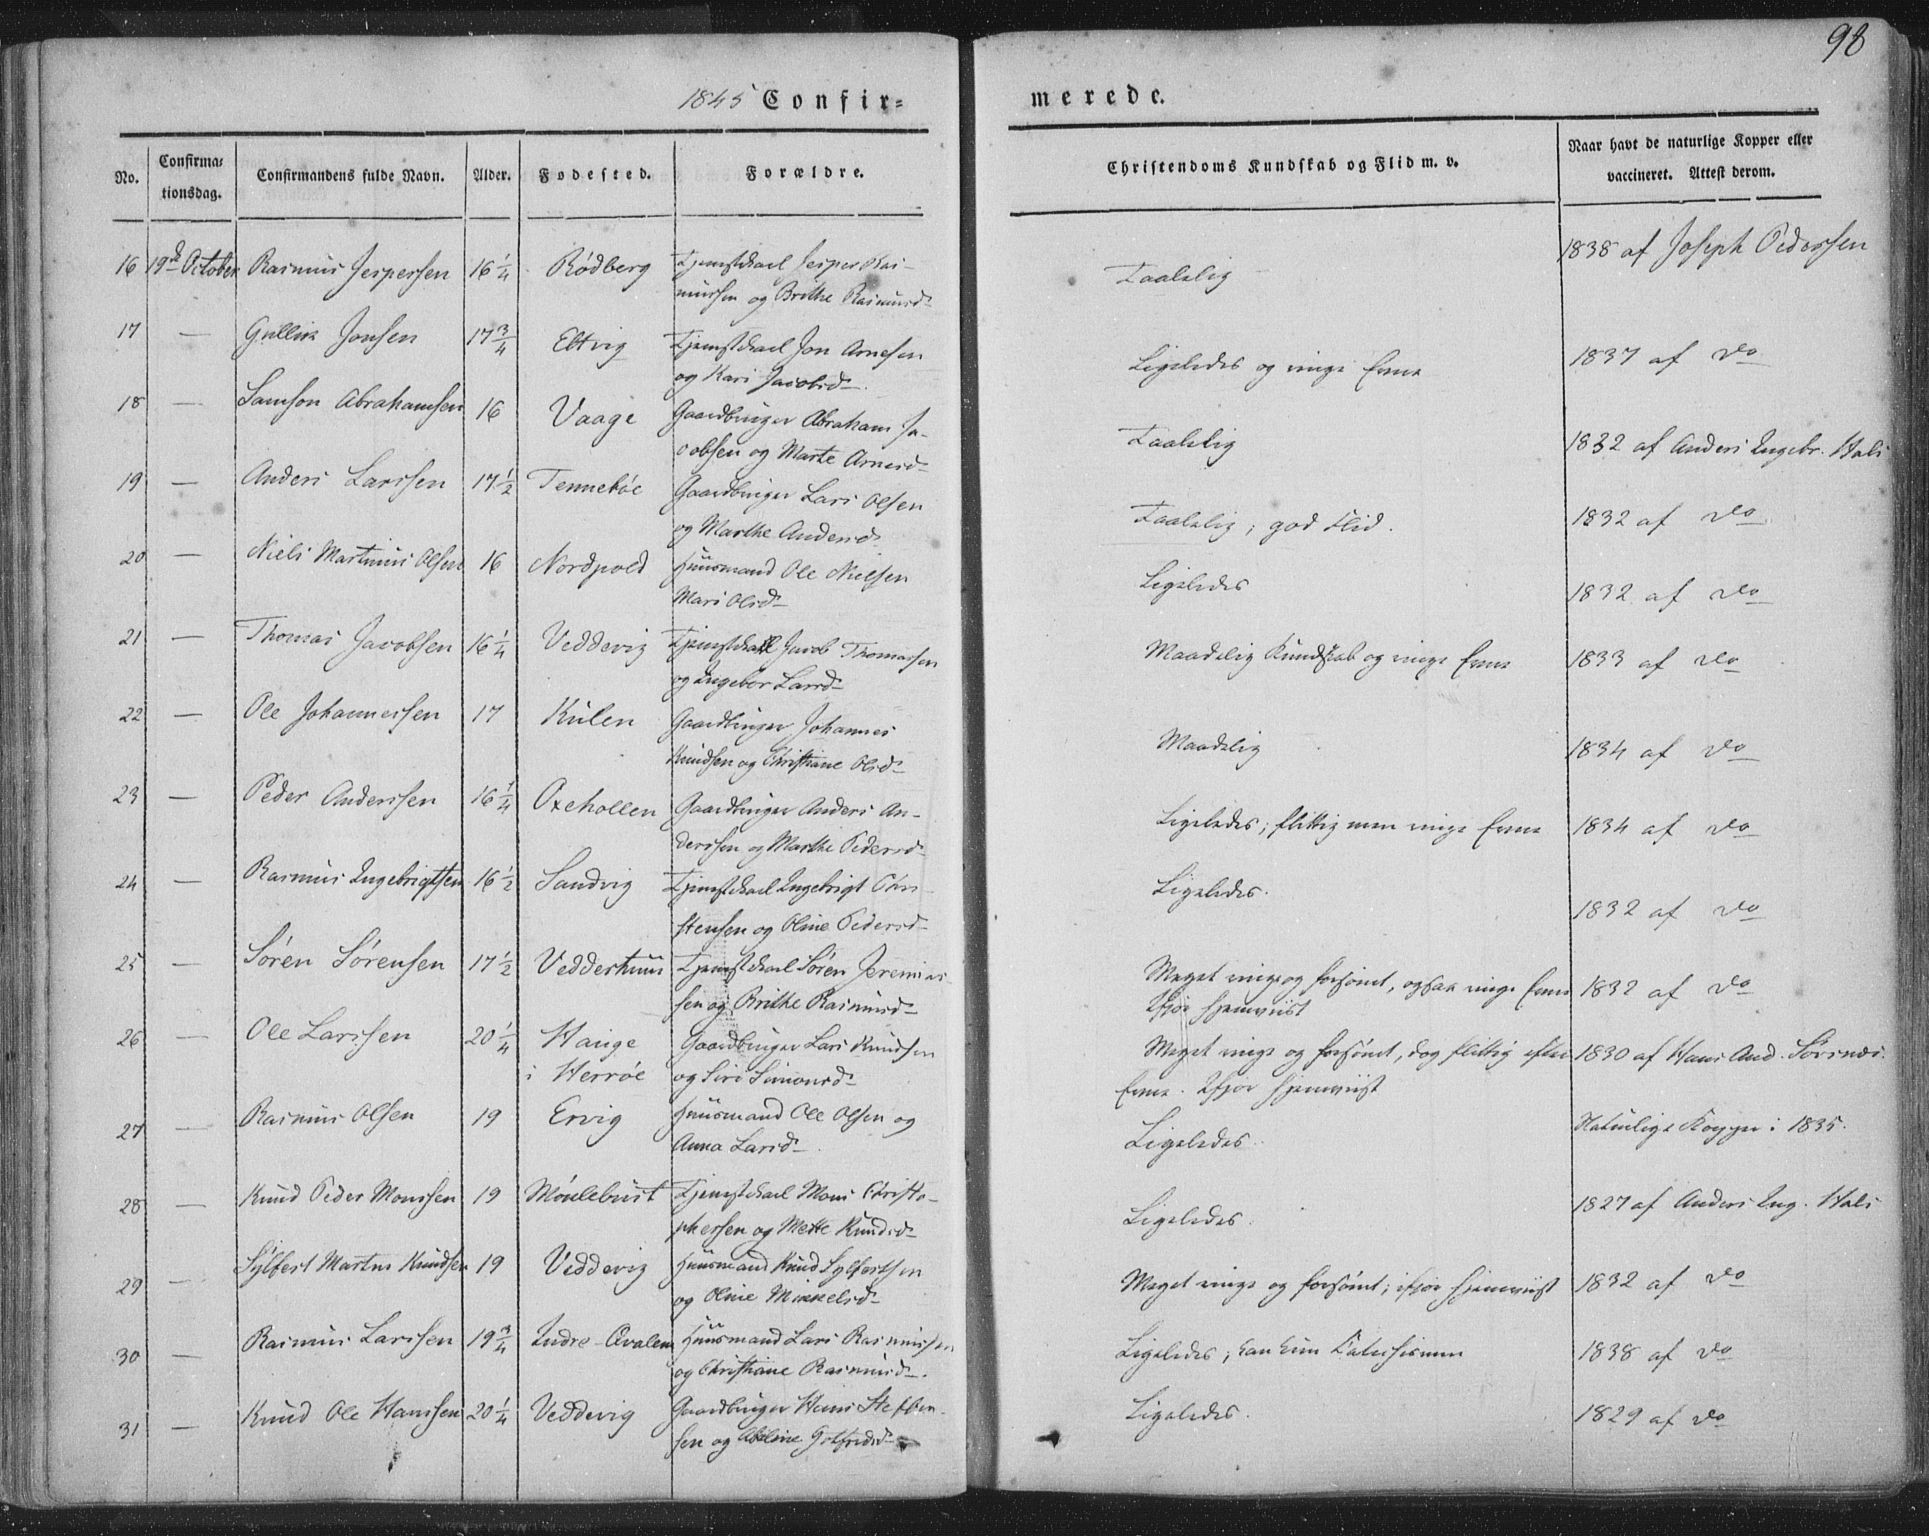 98
1845 Confir= merede.
No. Confirma= tionsdag. Confirmandens fulde Navn. Alder. Fødested. Forældre. Christendoms Kundskab og Flid m. v. Naar havt de naturlige Kopper eller vaccineret. Attest derom.
16 19de October Rasmus Jespersen 16 1/4 Rødberg Tjenstekarl Jesper Ras- Taalelig 1838 af Joseph Pederssen
mussen og Brithe Rasmusd.
17 — Gullik Jonsen 17 3/4 Eltvig Tjenstekarl Jon Arnesen Ligeledes og ringe Evne 1837 af do
og Kari Jacobsd.
18 — Samson Abrahamsen 16 Vaage Gaardbruger Abraham Ja- Taalelig 1832 af Anders Engebr. Hals
cobsen og Marte Arnesd.
19 — Anders Larssen 17 1/2 Tennebøe Gaardbruger Lars Olsen Taalelig, god Flid. 1832 af do
og Marthe Andersd.
20 — Niels Martinus Olsen 16 Nordpold Huusmand Ole Nielsen Ligeledes 1832 af do
Mari Olsd.
21 — Thomas Jacobsen 16 1/4 Veddevig Tjenstekarl Jacob Thomassen Maadelig Kundskab og ringe Evne 1833 af do
og Ingebor Larsd.
22 — Ole Johannessen 17 Kulen Gaardbruger Johannes Maadelig 1834 af do
Knudsen og Christiane Olsd.
23 — Peder Anderssen 16 1/4 Oxehollen Gaardbruger Anders An- Ligeledes; flittig men ringe Evne 1834 af do
derssen og Marthe Pedersd.
24 — Rasmus Ingebrigtsen 16 1/2 Sandvig Tjenstekarl Ingebrigt Chri- Ligeledes. 1832 af do
stensen og Oline Pedersd.
25 — Søren Sørensen 17 1/2 Veddershuus Tjenstekarl Søren Jeremias- Meget ringe og forsømt, ogsaa ringe Evne 1832 af do
sen og Brithe Rasmusd. Ifjor hjemviist
26 — Ole Larssen 20 1/4 Hauge Gaardbruger Lars Knudsen Meget ringe og forsømt, dog flittig efter 1830 af Hans And. Sørsnæs.
i Herrøe og Siri Simonsd. Evne. Ifjor hjemviist
27 — Rasmus Olsen 19 Ervig Huusmand Ole Olsen og Ligeledes. Naturlige Kopper i 1835.
Anna Larsd.
28 — Knud Peder Monssen 19 Møulebust Tjenstekarl Mons Christo- Ligeledes. 1827 af Anders Eng. Hals
phersen og Mette Knudsd.
29 — Sylfest Martin Knudsen 19 Veddevig Huusmand Knud Sylfestsen Meget ringe og forsømt; ifjor hjemviist 1832 af do
og Oline Mikkelsd.
30 — Rasmus Larssen 19 3/4 Indre-Qvalem Huusmand Lars Rasmussen Ligeledes; kan kun Catechismen 1838 af do
og Christiane Rasmusd.
31 — Knud Ole Hanssen 20 1/4 Veddevig Gaardbruger Hans Steffen- Ligeledes. 1829 af do
sen og Abeline